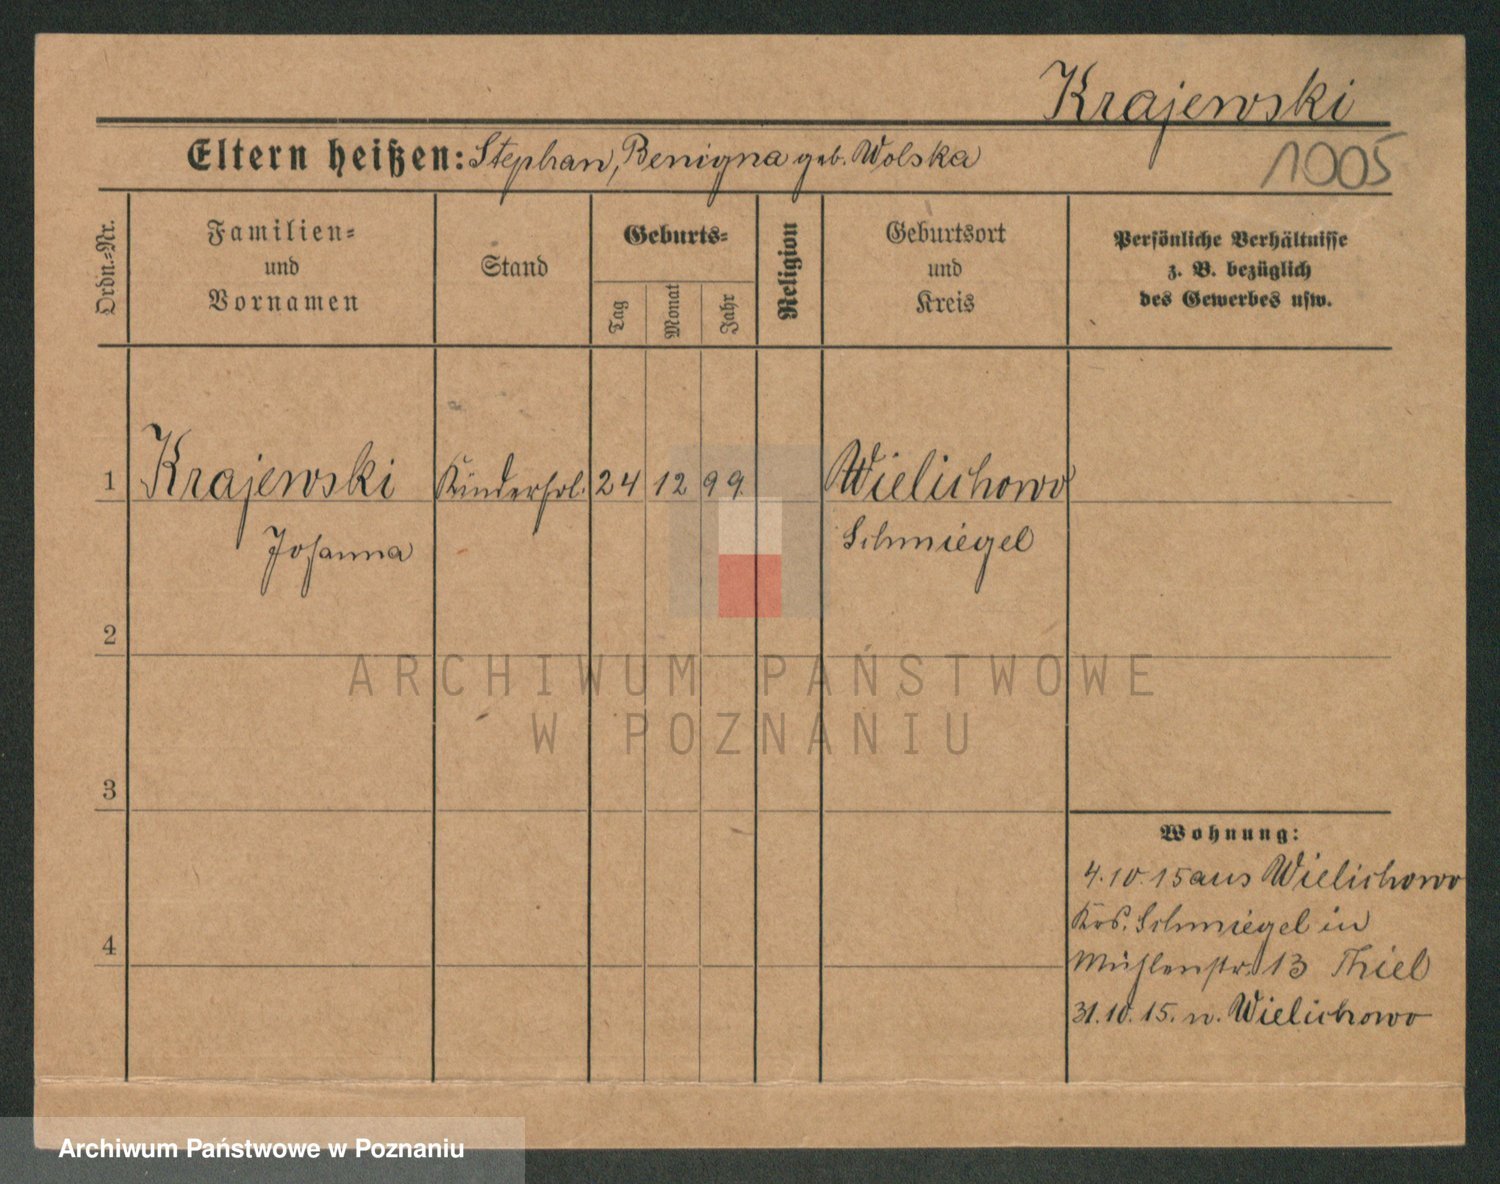 Krajewski
Eltern heißen: Stephan, Benigna geb. Wolska
1005
Ordn.-Nr.
Familien-
und
Vornamen
Stand
Geburts-
Tag
Monat
Jahr
Religion
Geburtsort
und
Kreis
Persönliche Verhältnisse
z. B. bezüglich
des Gewerbes usw.
1 Krajewski Kinderfrl. 24 12 99 Wielichowo
Johanna Schmiegel
2
3
4
Wohnung:
4.10.15 aus Wielichowo
Krs. Schmiegel in
Mühlenstr. 13 Thiel
31.10.15. n. Wielichowo
ARCHIWUM PAŃSTWOWE
W POZNANIU
Archiwum Państwowe w Poznaniu